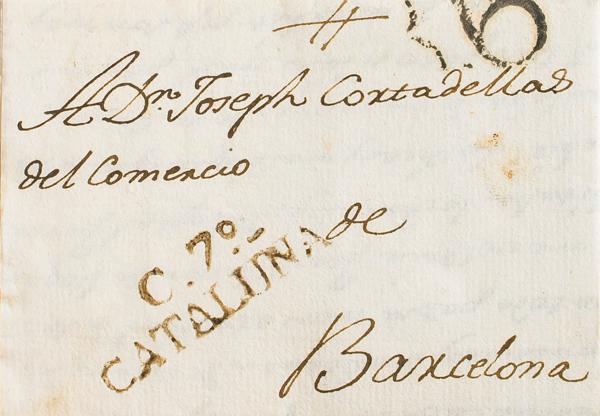 6
A Dn. Joseph Cortadellas
del Comercio
de
C. 7º.
CATALUÑA
Barcelona